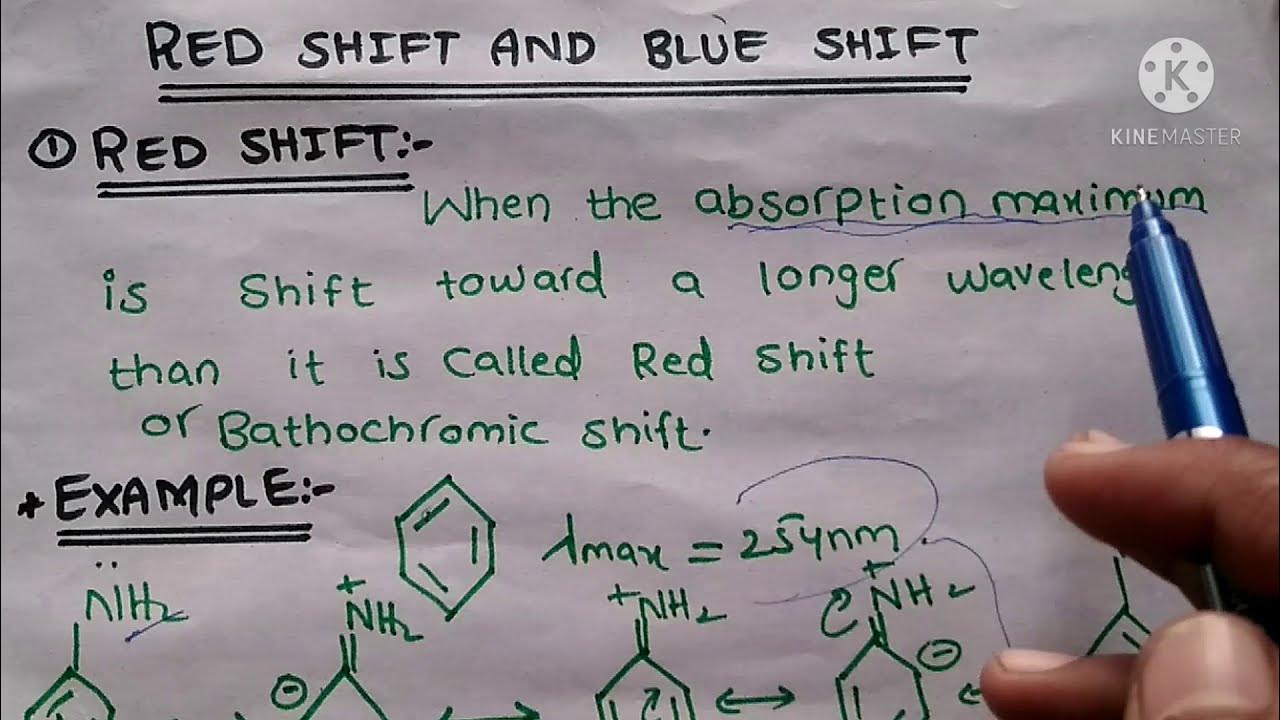 RED SHIFT AND BLUE SHIFT
K
KINEMASTER
① RED SHIFT:-
When the absorption maximum
is Shift toward a longer waveleng
than it is Called Red Shift
or Bathochromic Shift.
+ EXAMPLE:-
λmax = 254nm
NH2
+NH2
+NH2
+NH2